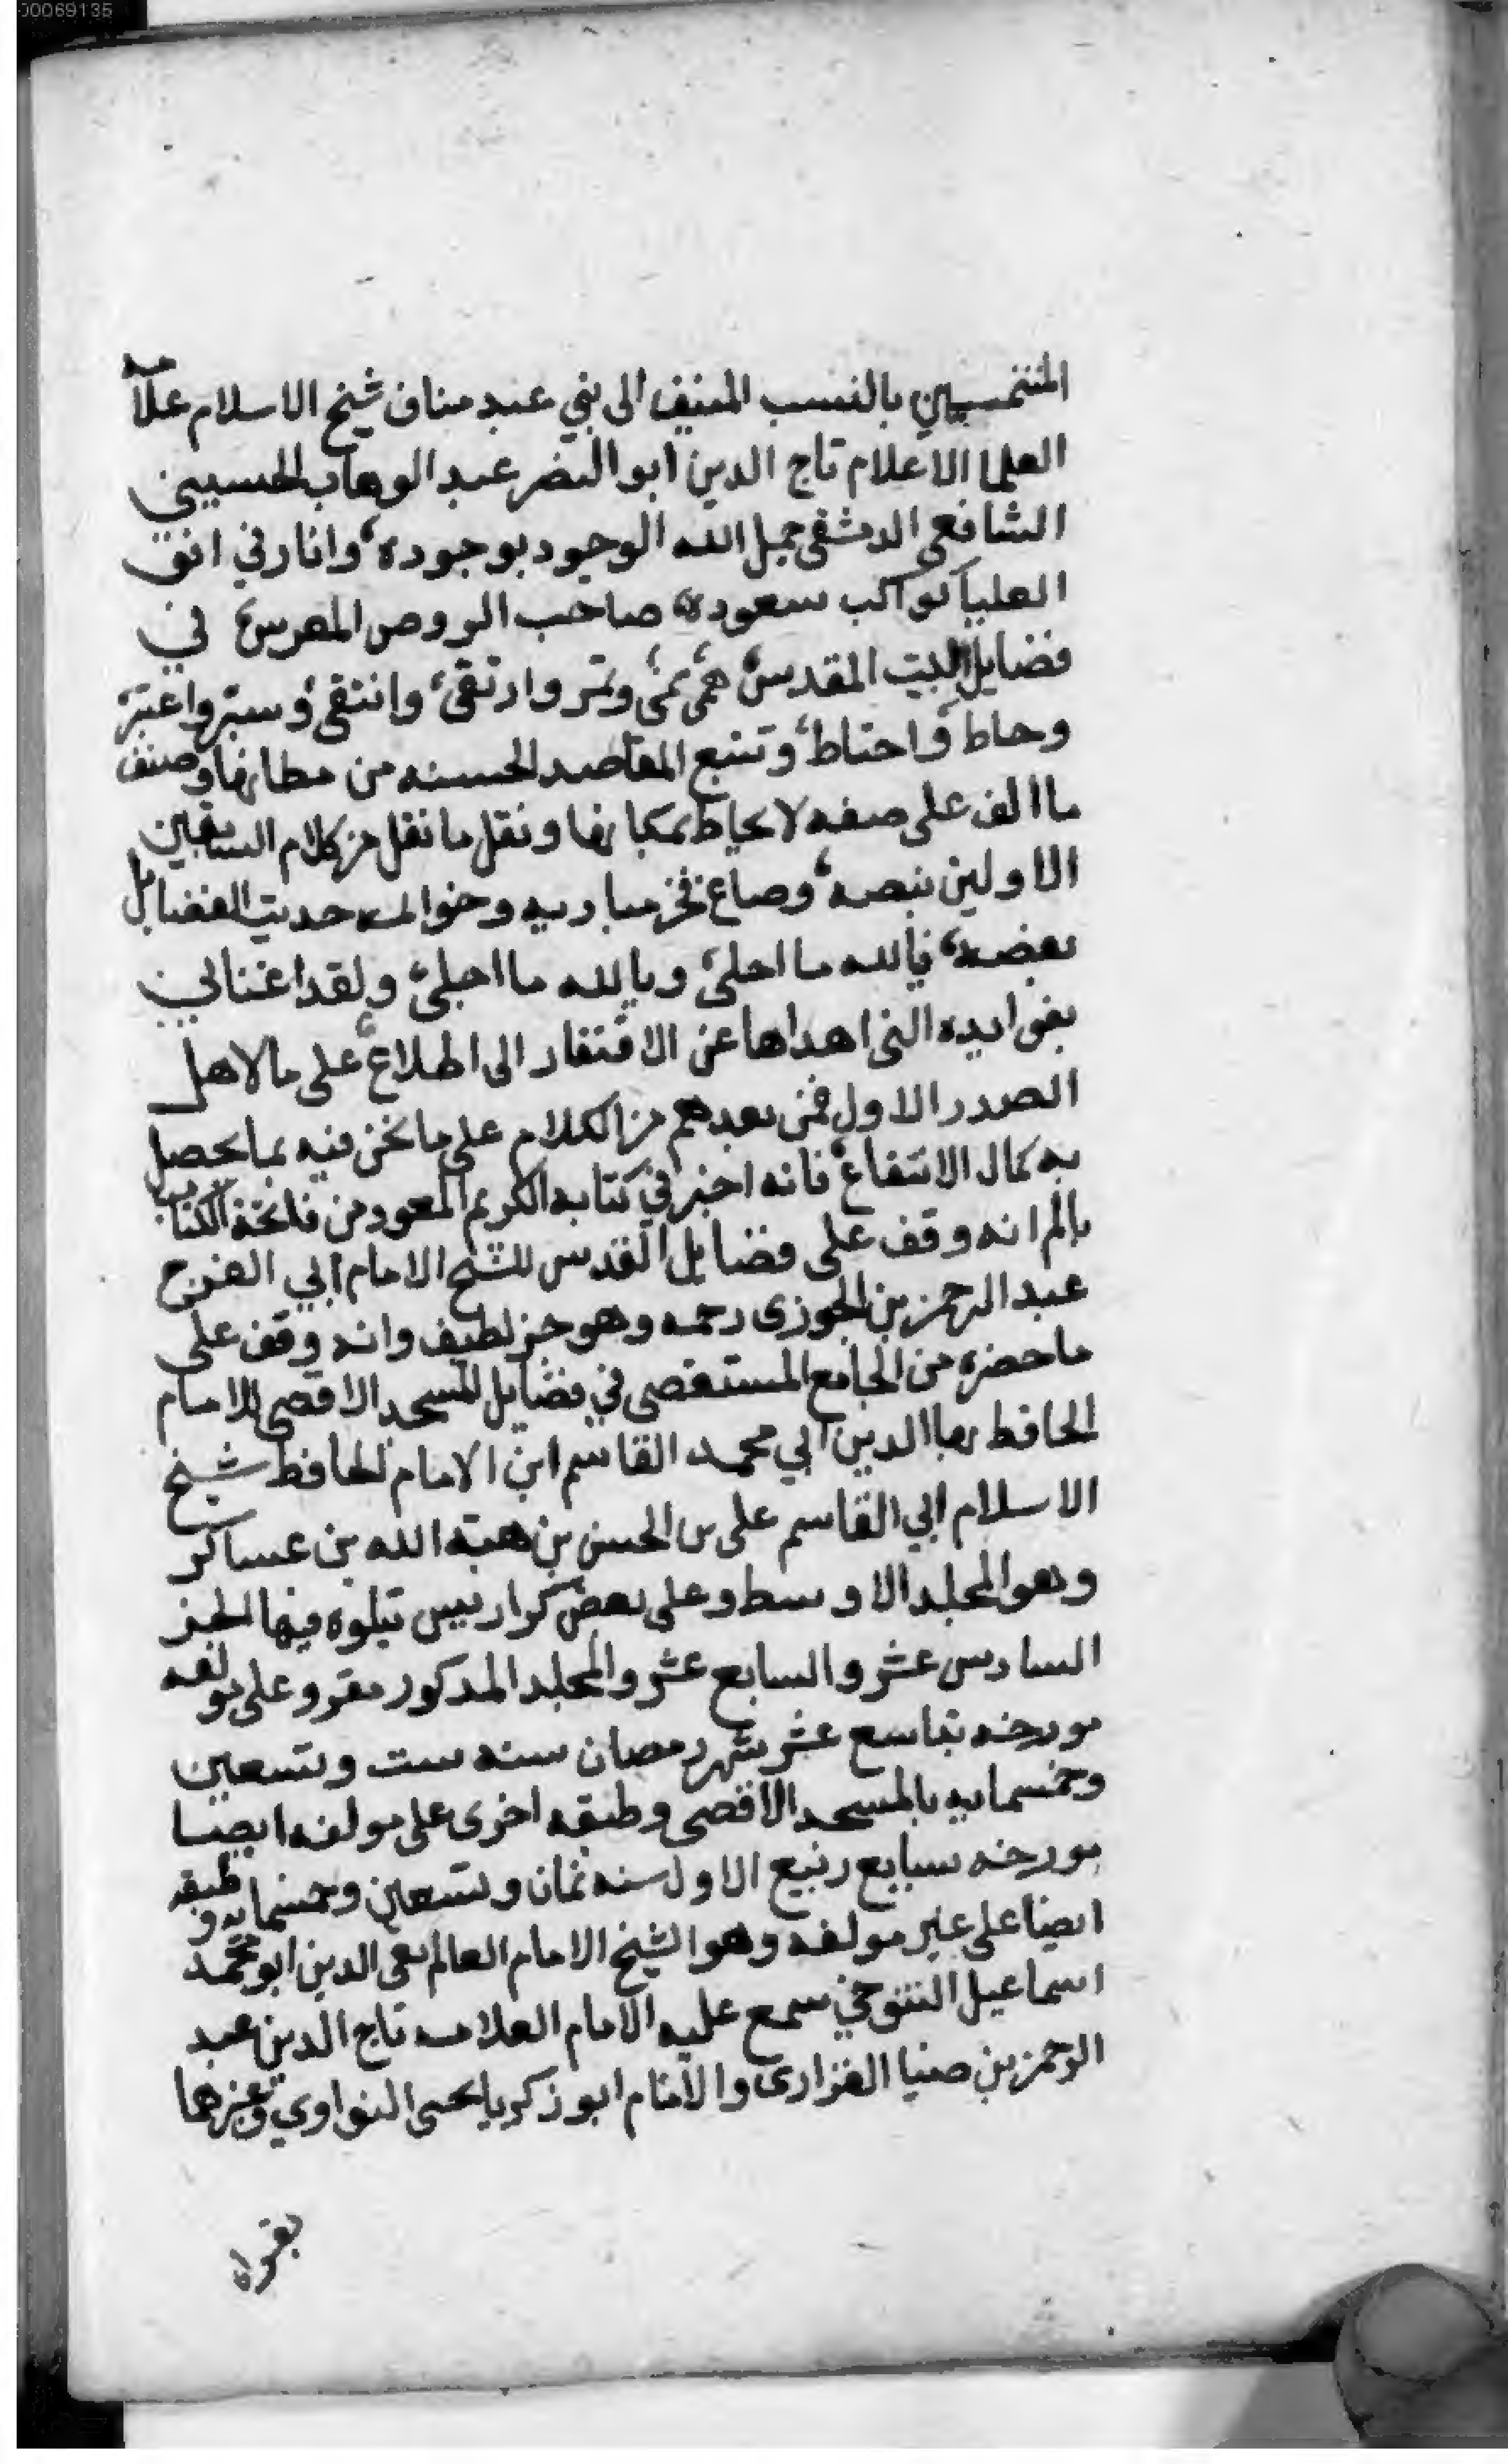 00069135
المنتمبين بالنسب المنيف الى بني عبد مناف شيخ الاسلام علامه
العلما الاعلام تاج الدين ابو النضر عبد الوهاب الحسيني
الشافعي الدمشقي جمل الله الوجود بوجوده، وانار في افق
العليا كواكب سعوده صاحب الروض المعرس في
فضايل البيت المقدس همى نمى ونثر وارتقى، وانتقى وسبر واعتبر
وحاط واحتاط، وتتبع المقاصد الحسنه من مظانها وصنف
ما الف على صفه لا يحاط بمكانها ونقل ما نقل من كلام السابقين
الاولين بنصه، وصاغ مباديه حديث الفضايل
بعضه، فيالله ما احلى، ويالله ما اجلى، ولقد اغناني
بفوايده التي اهداها عن الافتقار الى اطلاع، على ما لاهل
الصدر الاول فمن بعدهم من الكلام على ما نحن فيه بما يحصل
به كمال الانتفاع، فانه اخبر في كتابه الكريم المعوذ من فاتحة الكتاب
بالم انه وقف على فضايل القدس للشيخ الامام ابي الفرج
عبد الرحمن بن الجوزى رحمه وهو جز لطيف وانه وقف على
ما حضره من الجامع المستقصى في فضايل المسجد الاقصى للامام
الحافظ بها الدين ابي محمد القاسم ابن الامام الحافظ شيخ
الاسلام ابي القاسم على بن الحسن بن هبة الله بن عساكر
وهو المجلد الاوسط وعلى بعض كراريس تتلوه فيها الجز
السادس عشر والسابع عشر والمجلد المذكور مقرو على مولفه
مورخه بتاسع عشر شهر رمضان سنه ست وتسعين
وخمسمايه بالمسجد الاقصى وطبقه اخرى على مولفه ايضا
مورخه سابع ربيع الاول سنه ثمان وتسعين وخمسمايه وطبقه
ايضا على غير مولفه وهو الشيخ الامام العالم تقى الدين ابو محمد
اسماعيل التنوخي سمع عليه الامام العلامه تاج الدين عبد
الرحمن بن ضيا الفزارى والامام ابو زكريا يحيى النواوي وغيرهما
بقراة